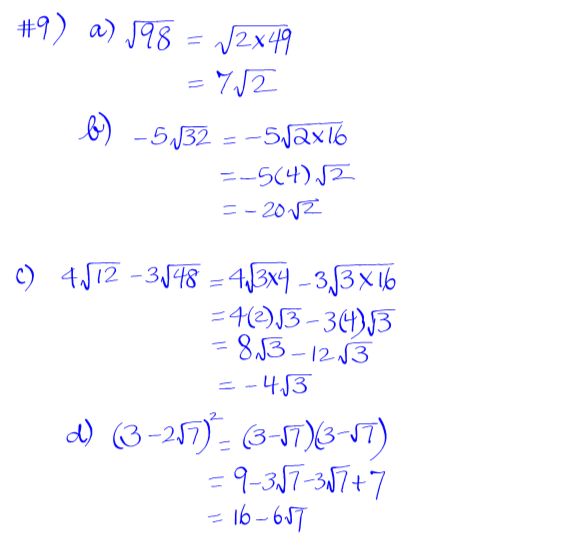 #9) a) √98 = √2×49
= 7√2
b) -5√32 = -5√2×16
= -5(4)√2
= -20√2
c) 4√12 - 3√48 = 4√3×4 - 3√3×16
= 4(2)√3 - 3(4)√3
= 8√3 - 12√3
= -4√3
d) (3 - 2√7)² = (3-√7)(3-√7)
= 9 - 3√7 - 3√7 + 7
= 16 - 6√7